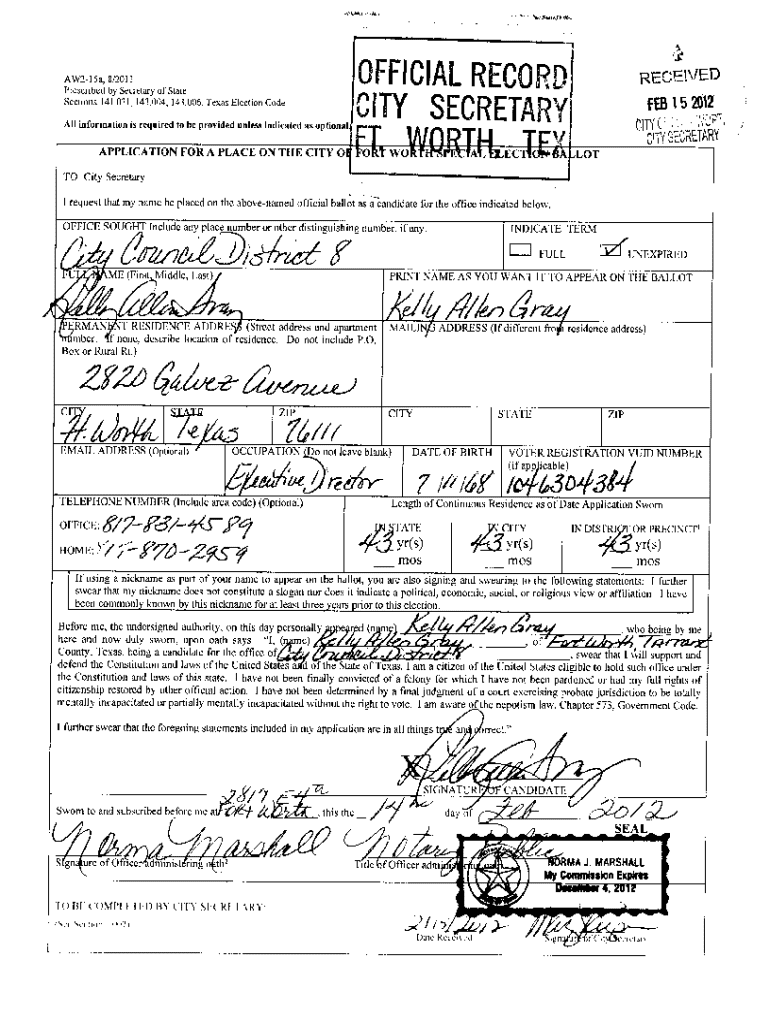 AW2-15a, 8/2011
Prescribed by Secretary of State
Sections 141.031, 143.004, 143.006, Texas Election Code
All information is required to be provided unless indicated as optional.
OFFICIAL RECORD
CITY SECRETARY
FT. WORTH, TEX
RECEIVED
FEB 15 2012
CITY SECRETARY
APPLICATION FOR A PLACE ON THE CITY OF FORT WORTH SPECIAL ELECTION BALLOT
TO: City Secretary
I request that my name be placed on the above-named official ballot as a candidate for the office indicated below.
OFFICE SOUGHT Include any place number or other distinguishing number, if any.
City Council District 8
INDICATE TERM
FULL
UNEXPIRED
FULL NAME (First, Middle, Last)
Kelly Allen Gray
PRINT NAME AS YOU WANT IT TO APPEAR ON THE BALLOT
Kelly Allen Gray
PERMANENT RESIDENCE ADDRESS (Street address and apartment
number. If none, describe location of residence. Do not include P.O.
Box or Rural Rt.)
2820 Galvez Avenue
MAILING ADDRESS (If different from residence address)
CITY STATE ZIP
Ft. Worth Texas 76111
CITY STATE ZIP
EMAIL ADDRESS (Optional)
OCCUPATION (Do not leave blank)
Executive Director
DATE OF BIRTH
VOTER REGISTRATION VUID NUMBER
(if applicable)
1046304384
TELEPHONE NUMBER (Include area code) (Optional)
OFFICE: 817-831-4589
HOME: 817-870-2959
Length of Continuous Residence as of Date Application Sworn
IN STATE IN CITY IN DISTRICT OR PRECINCT
43 yr(s) 43 yr(s) 43 yr(s)
mos mos mos
If using a nickname as part of your name to appear on the ballot, you are also signing and swearing to the following statements: I further
swear that my nickname does not constitute a slogan nor does it indicate a political, economic, social, or religious view or affiliation. I have
been commonly known by this nickname for at least three years prior to this election.
Before me, the undersigned authority, on this day personally appeared (name) Kelly Allen Gray, who being by me
here and now duly sworn, upon oath says: "I, (name) Kelly Allen Gray, of Fort Worth Tarrant
County, Texas, being a candidate for the office of City Council District 8, swear that I will support and
defend the Constitution and laws of the United States and of the State of Texas. I am a citizen of the United States eligible to hold such office under
the Constitution and laws of this state. I have not been finally convicted of a felony for which I have not been pardoned or had my full rights of
citizenship restored by other official action. I have not been determined by a final judgment of a court exercising probate jurisdiction to be totally
mentally incapacitated or partially mentally incapacitated without the right to vote. I am aware of the nepotism law, Chapter 573, Government Code.
I further swear that the foregoing statements included in my application are in all things true and correct."
X Kelly Allen Gray
SIGNATURE OF CANDIDATE
2817 E 4th
Sworn to and subscribed before me at Fort Worth, this the 14th day of Feb 2012
SEAL
Norma Marshall
Notary Public
Signature of Officer administering oath²
Title of Officer administering oath
NORMA J. MARSHALL
My Commission Expires
December 4, 2012
TO BE COMPLETED BY CITY SECRETARY:
2/15/2012
Date Received
Signature of City Secretary